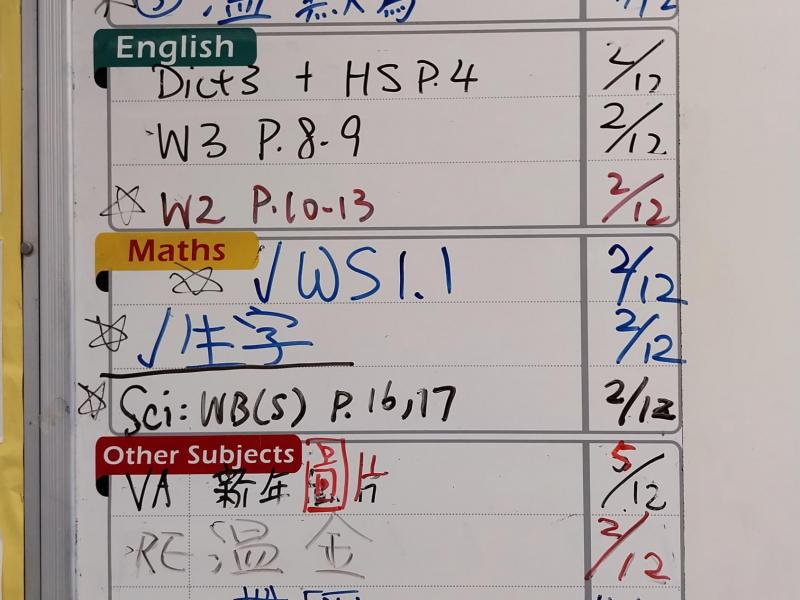 ③ 温
2/12
English
Dict 3 + HS P.4 2/12
W3 P.8-9 2/12
☆ W2 P.10-13 2/12
Maths
☆ √ WS 1.1 2/12
☆ √ 生字 2/12
☆ Sci: WB(S) P.16,17 2/12
Other Subjects
VA 新年 5/12
RE 温 金 2/12